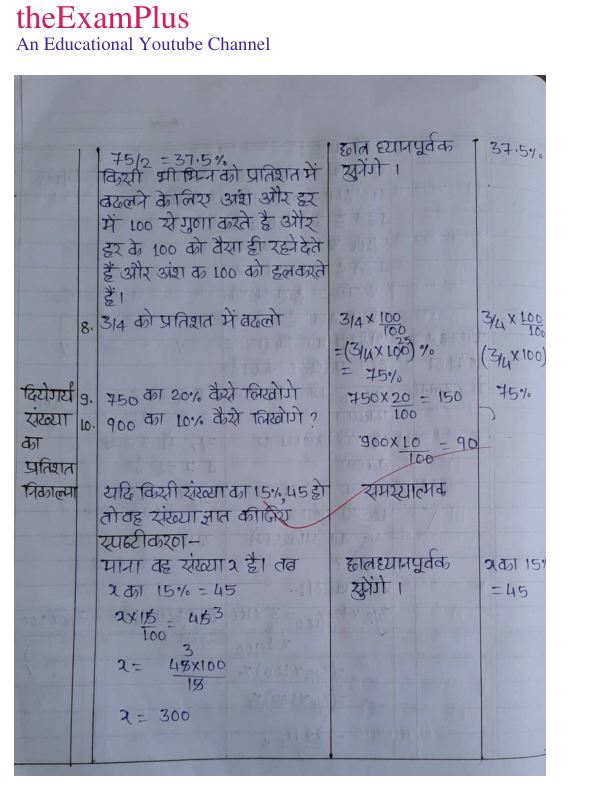 theExamPlus
An Educational Youtube Channel
75/2 = 37.5%
किसी भी भिन्न को प्रतिशत में
बदलने के लिए अंश और हर
में 100 से गुणा करते है और
हर के 100 को वैसा ही रहने देते
हैं और अंश क 100 को हल करते
हैं।
छात्र ध्यानपूर्वक
सुनेंगे ।
37.5%
8. 3/4 को प्रतिशत में बदलो
3/4 × 100/100
= (3/4 × 100) %
25
= 75%
3/4 × 100/100
(3/4 × 100)
75%
दिये गये
संख्या
का
प्रतिशत
निकालना
9. 750 का 20% कैसे लिखोगे
750 × 20/100 = 150
10. 900 का 10% कैसे लिखोगे ?
900 × 10/100 = 90
यदि किसी संख्या का 15%, 45 हो
तो वह संख्या ज्ञात कीजिए
समस्यात्मक
स्पष्टीकरण –
माना वह संख्या x है। तब
x का 15% = 45
x × 15/100 = 45 3
3
x = 45×100/15
x = 300
छात्र ध्यानपूर्वक
सुनेंगे ।
x का 15%
= 45